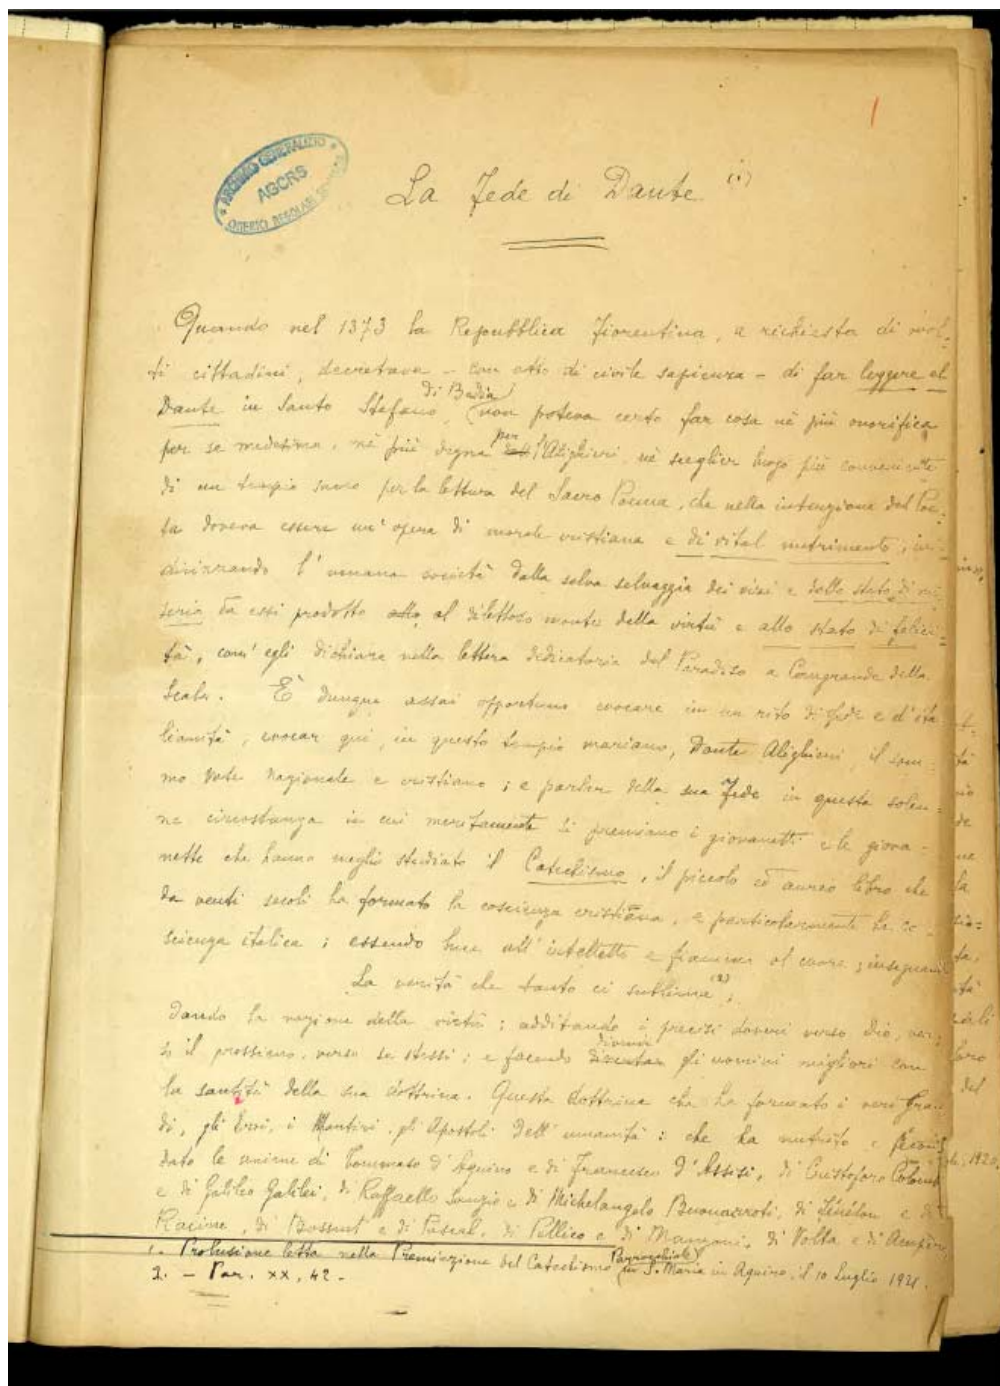 1
ARCHIVIO GENERALIZIO
AGCRS
La Fede di Dante (1)
Quando nel 1373 la Repubblica Fiorentina, a richiesta di mol-
ti cittadini, decretava - con atto di civile sapienza - di far leggere el
Dante in Santo Stefano di Badia, non poteva certo far cosa nè più onorifica
per se medesima, nè più degna per l'Alighieri, nè sceglier luogo più conveniente
di un tempio sacro per la lettura del Sacro Poema, che nella intenzione del Poe-
ta doveva essere un' opera di morale cristiana e di vital nutrimento, in-
dirizzando l' umana società dalla selva selvaggia dei vizi e dallo stato di mi-
seria da essi prodotto al dilettoso monte della virtù e allo stato di felici-
tà, com' egli dichiara nella lettera dedicatoria del Paradiso a Cangrande della
Scala. È dunque assai opportuno evocare in un rito di fede e d'ita
lianità, evocar qui, in questo tempio mariano, Dante Alighieri, il som-
mo Vate nazionale e cristiano; e parlar della sua Fede in questa solen-
ne circostanza in cui meritamente si premiano i giovanetti e le giova-
nette che hanno meglio studiato il Catechismo, il piccolo ed aureo libro che
da venti secoli ha formato la coscienza cristiana, e particolarmente la co-
scienza italica; essendo luce all' intelletto e fiamma al cuore; insegnando
La verità che tanto ci sublima (2),
dando la ragione della virtù; additando i precisi doveri verso Dio, ver-
so il prossimo, verso se stessi; e facendo divenir diventar gli uomini migliori con
la santità della sua dottrina. Questa dottrina che ha formato i veri Gran
di, gli Eroi, i Martiri, gli Apostoli dell' umanità: che ha nutrito e
dato le anime di Tommaso d' Aquino e di Francesco d' Assisi, di Cristoforo Colombo
e di Galileo Galilei, di Raffaello Sanzio e di Michelangelo Buonarroti, di Fénélon e di
Racine, di Bossuet e di Pascal, di Pellico e di Manzoni, di Volta e di Ampère,
1. - Prolusione letta nella Premiazione del Catechismo Parrocchiale in S. Maria in Aquiro, il 10 Luglio 1921.
2. - Par. XX, 42 -